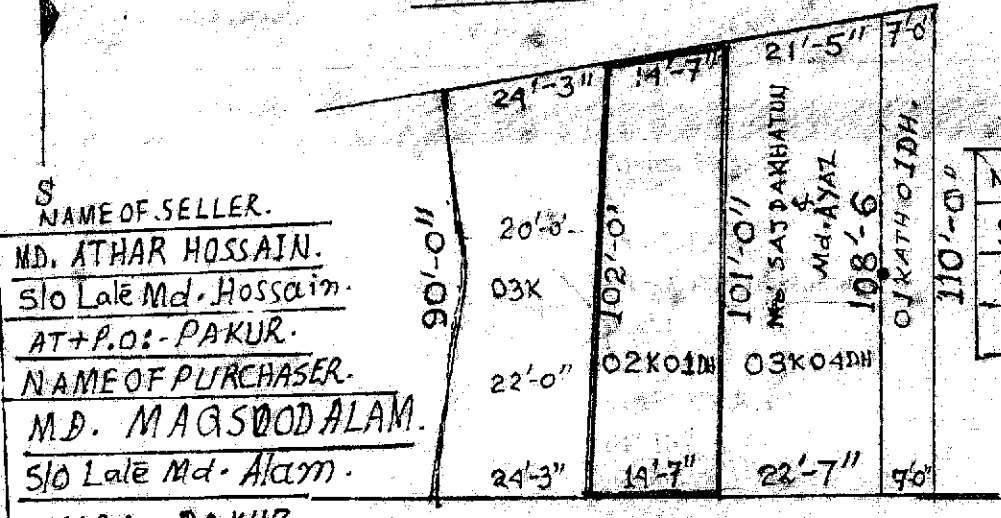 S
NAME OF SELLER.
MD. ATHAR HOSSAIN.
S/O Late Md. Hossain.
AT+P.O:- PAKUR.
NAME OF PURCHASER.
MD. MAQSOOD ALAM.
S/O Late Md. Alam.
PAKUR
24'-3" 14'-7" 21'-5" 7'-0"
90'-0"
20'-0"
03K
22'-0"
24'-3"
102'-0"
02K01DH
14'-7"
101'-0"
SAJDAKHATUN
&
Md. AYAZ
108'-6
03K04DH
22'-7"
01KATHO1DH.
7'-0"
110'-0"